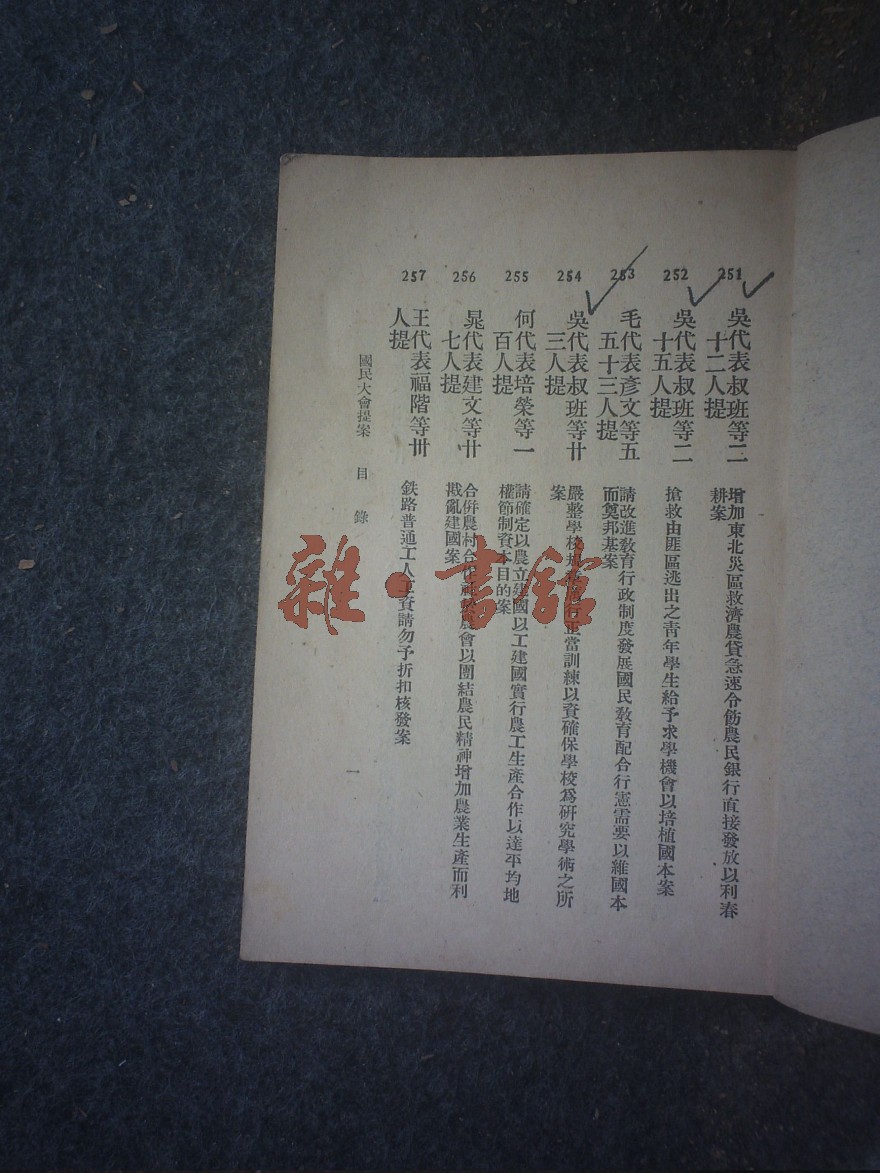 251
吳代表叔班等二
十二人提
增加東北災區救濟農貸急速令飭農民銀行直接發放以利春
耕案
252
吳代表叔班等二
十五人提
搶救由匪區逃出之青年學生給予求學機會以培植國本案
253
毛代表彥文等五
五十三人提
請改進教育行政制度發展國民教育配合行憲需要以維國本
而奠邦基案
254
吳代表叔班等廿
三人提
嚴整學校 行正當訓練以資確保學校爲研究學術之所
案
255
何代表培榮等一
百人提
請確定以農立建國以工建國實行農工生產合作以達平均地
權節制資本目的案
256
晁代表建文等廿
七人提
合併農村合作 農會以團結農民精神增加農業生產而利
戡亂建國案
257
王代表福階等卅
人提
鉄路普通工人工資請勿予折扣核發案
國民大會提案 目錄
一
雜·書館